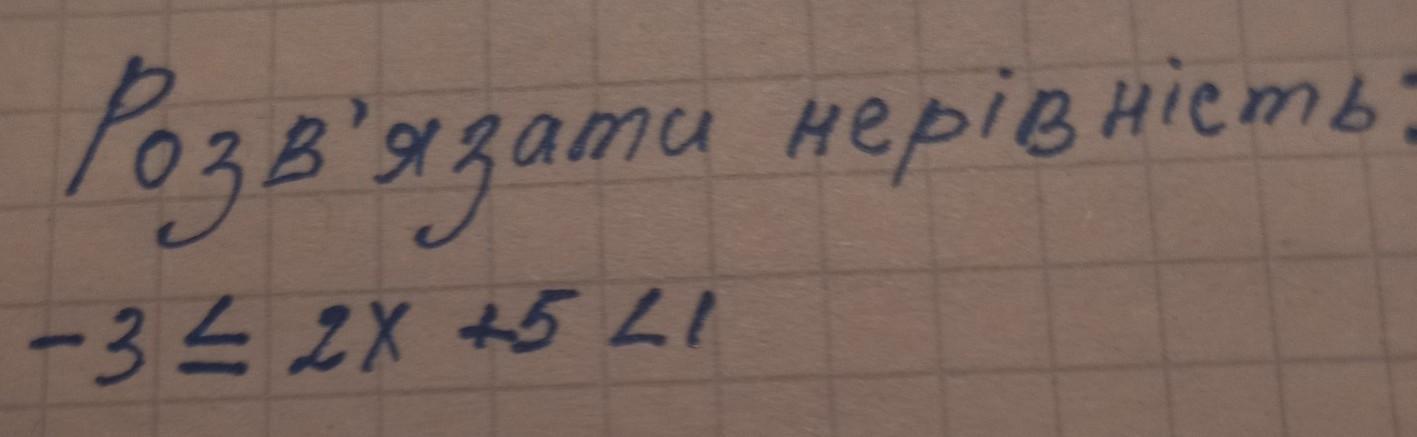 Розв'язати нерівність:
-3 ≤ 2x +5 <1